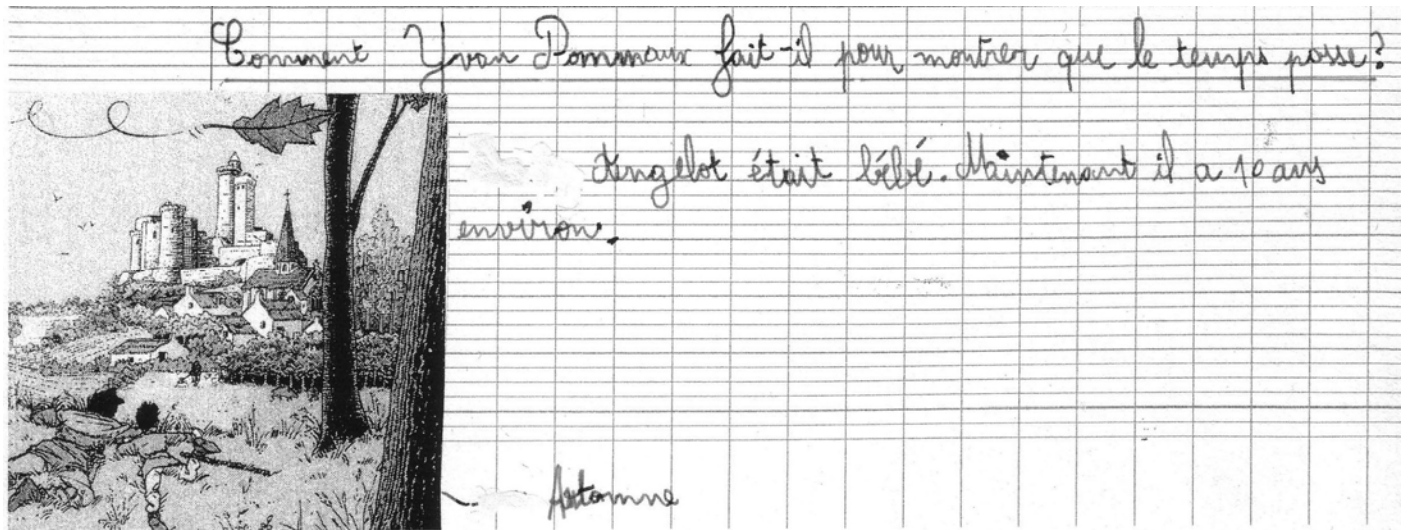 Comment Yvan Pommaux fait-il pour montrer que le temps passe?
Angelot était bébé. Maintenant il a 10 ans
environ.
Automne